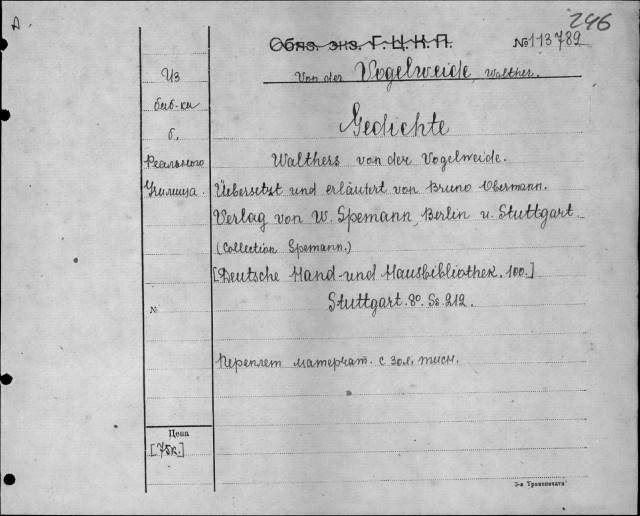 A
246
Обяз. экз. Г.Ц.К.П.
№113789
Von der Vogelweide, Walther.
Из
биб-ки
б.
Реального
Училища.
Gedichte
Walthers von der Vogelweide.
Üebersetzt und erläutert von Bruno Obermann.
Verlag von W. Spemann, Berlin u. Stuttgart
(Collection Spemann.)
[Deutsche Hand-und Hausbibliothek. 100.]
№
Stuttgart. 8º. Ss. 212.
Переплет матерчат. с зол. тисн.
Цена
[75к.]
3-я Транспечать